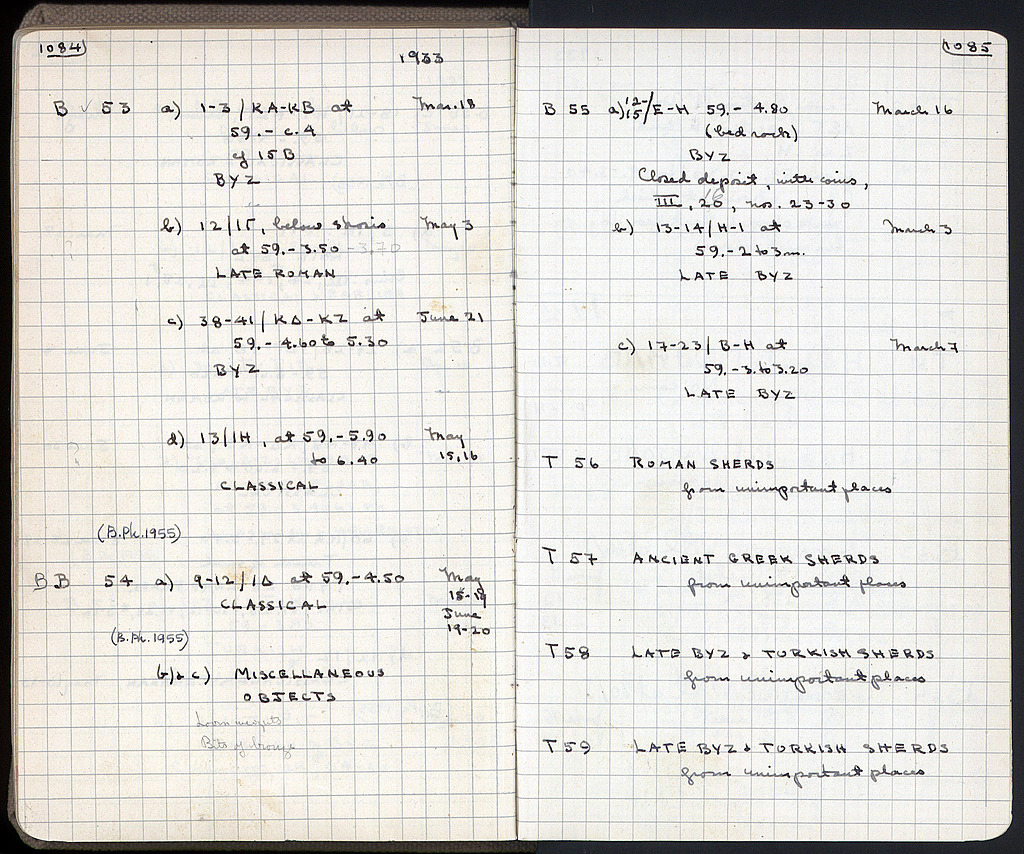 1084
1933
B ✓ 53 a) 1-3/KA-KB at Mar. 18
59.- c.4
of 15 B
BYZ
b) 12/ΙΓ, below stosis May 3
at 59.-3.50 -3.70
LATE ROMAN
c) 38-41/ΚΔ-ΚΖ at June 21
59.- 4.60 to 5.30
BYZ
d) 13/ΙΗ, at 59.-5.90 May
to 6.40 15,16
CLASSICAL
(B.Ph. 1955)
BB 54 a) 9-12/ΙΔ at 59.-4.50 May
15-19
CLASSICAL June
19-20
(B.Ph. 1955)
b) & c) MISCELLANEOUS
OBJECTS
Loom weights
Bits of bronze
1085
B 55 a) 12-15/E-H 59.- 4.80 March 16
(bed rock)
BYZ
Closed deposit, with coins,
III, 20, nos. 23-30
16
b) 13-14/H-I at March 3
59.-2 to 3 m.
LATE BYZ
c) 17-23/B-H at March 7
59.-3. to 3.20
LATE BYZ
T 56 ROMAN SHERDS
from unimportant places
T 57 ANCIENT GREEK SHERDS
from unimportant places
T 58 LATE BYZ & TURKISH SHERDS
from unimportant places
T 59 LATE BYZ & TURKISH SHERDS
from unimportant places